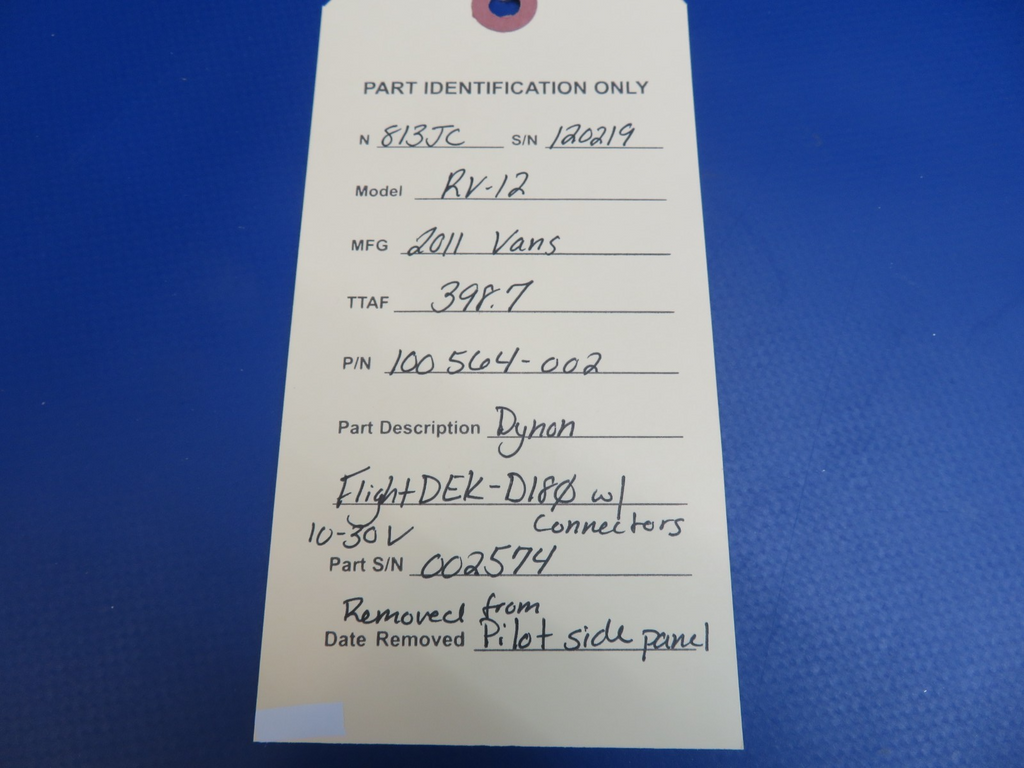 PART IDENTIFICATION ONLY
N 813JC S/N 120219
Model RV-12
MFG 2011 Vans
TTAF 398.7
P/N 100564-002
Part Description Dynon
FlightDEK-D18Ø w/
connectors
10-30V
Part S/N 002574
Removed from
Date Removed Pilot side panel